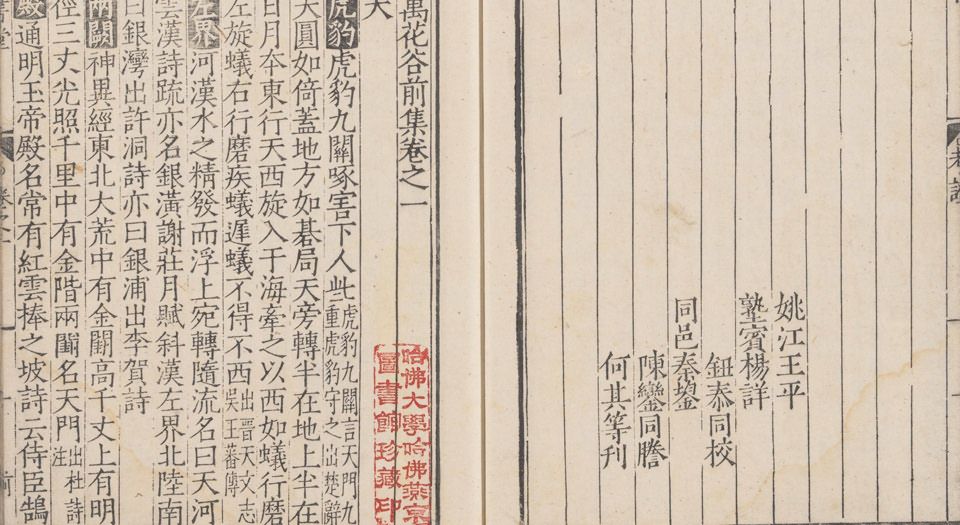 姚江王平
塾賓楊詳
鈕泰同校
同邑奉
陳鑾同謄
何其等刊
萬花谷前集卷之一
哈佛大學哈佛燕京
圖書館珍藏印
天
虎豹虎豹九關啄害下人些虎豹九關言天門九重虎豹守之出楚辭
天圓如倚蓋地方如碁局天旁轉半在地上半在
日月本東行天西旋入于海牽之以西如蟻行磨
左旋蟻右行磨疾蟻遲蟻不得不西出晉天文志吳王蕃傳
左界河漢水之精發而浮上宛轉隨流名曰天河
雲漢詩疏亦名銀潢謝莊月賦斜漢左界北陸南
曰銀灣出許洞詩亦曰銀浦出李賀詩
兩闕神異經東北大荒中有金闕高千丈上有明
徑三丈光照千里中有金階兩闕名天門出杜詩注
殿通明王帝殿名常有紅雲捧之坡詩云侍臣鵠